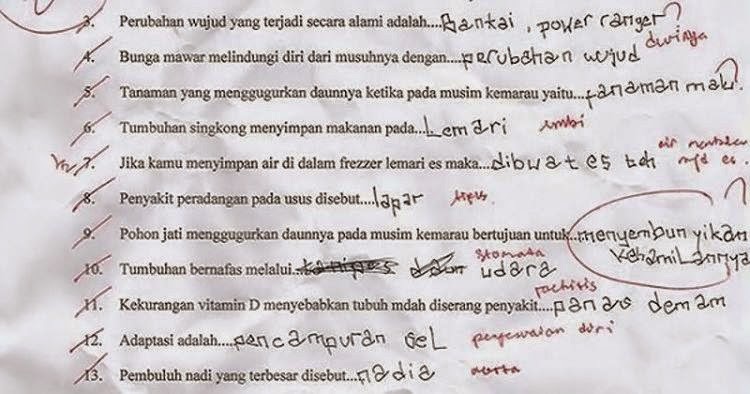 3. Perubahan wujud yang terjadi secara alami adalah....Bantai, power ranger ?
4. Bunga mawar melindungi diri dari musuhnya dengan....perubahan wujud durinya
5. Tanaman yang menggugurkan daunnya ketika pada musim kemarau yaitu...tanaman mati. ?
6. Tumbuhan singkong menyimpan makanan pada...Lemari umbi
7. Jika kamu menyimpan air di dalam frezzer lemari es maka...dibuat es teh air membeku mjd es.
8. Penyakit peradangan pada usus disebut....lapar tipus
9. Pohon jati menggugurkan daunnya pada musim kemarau bertujuan untuk..menyembunyikan ?
kehamilannya
10. Tumbuhan bernafas melalui... daun udara stomata
11. Kekurangan vitamin D menyebabkan tubuh mdah diserang penyakit....panas demam rachitis
12. Adaptasi adalah....pencampuran gel penyesuaian diri
13. Pembuluh nadi yang terbesar disebut...nadia aorta